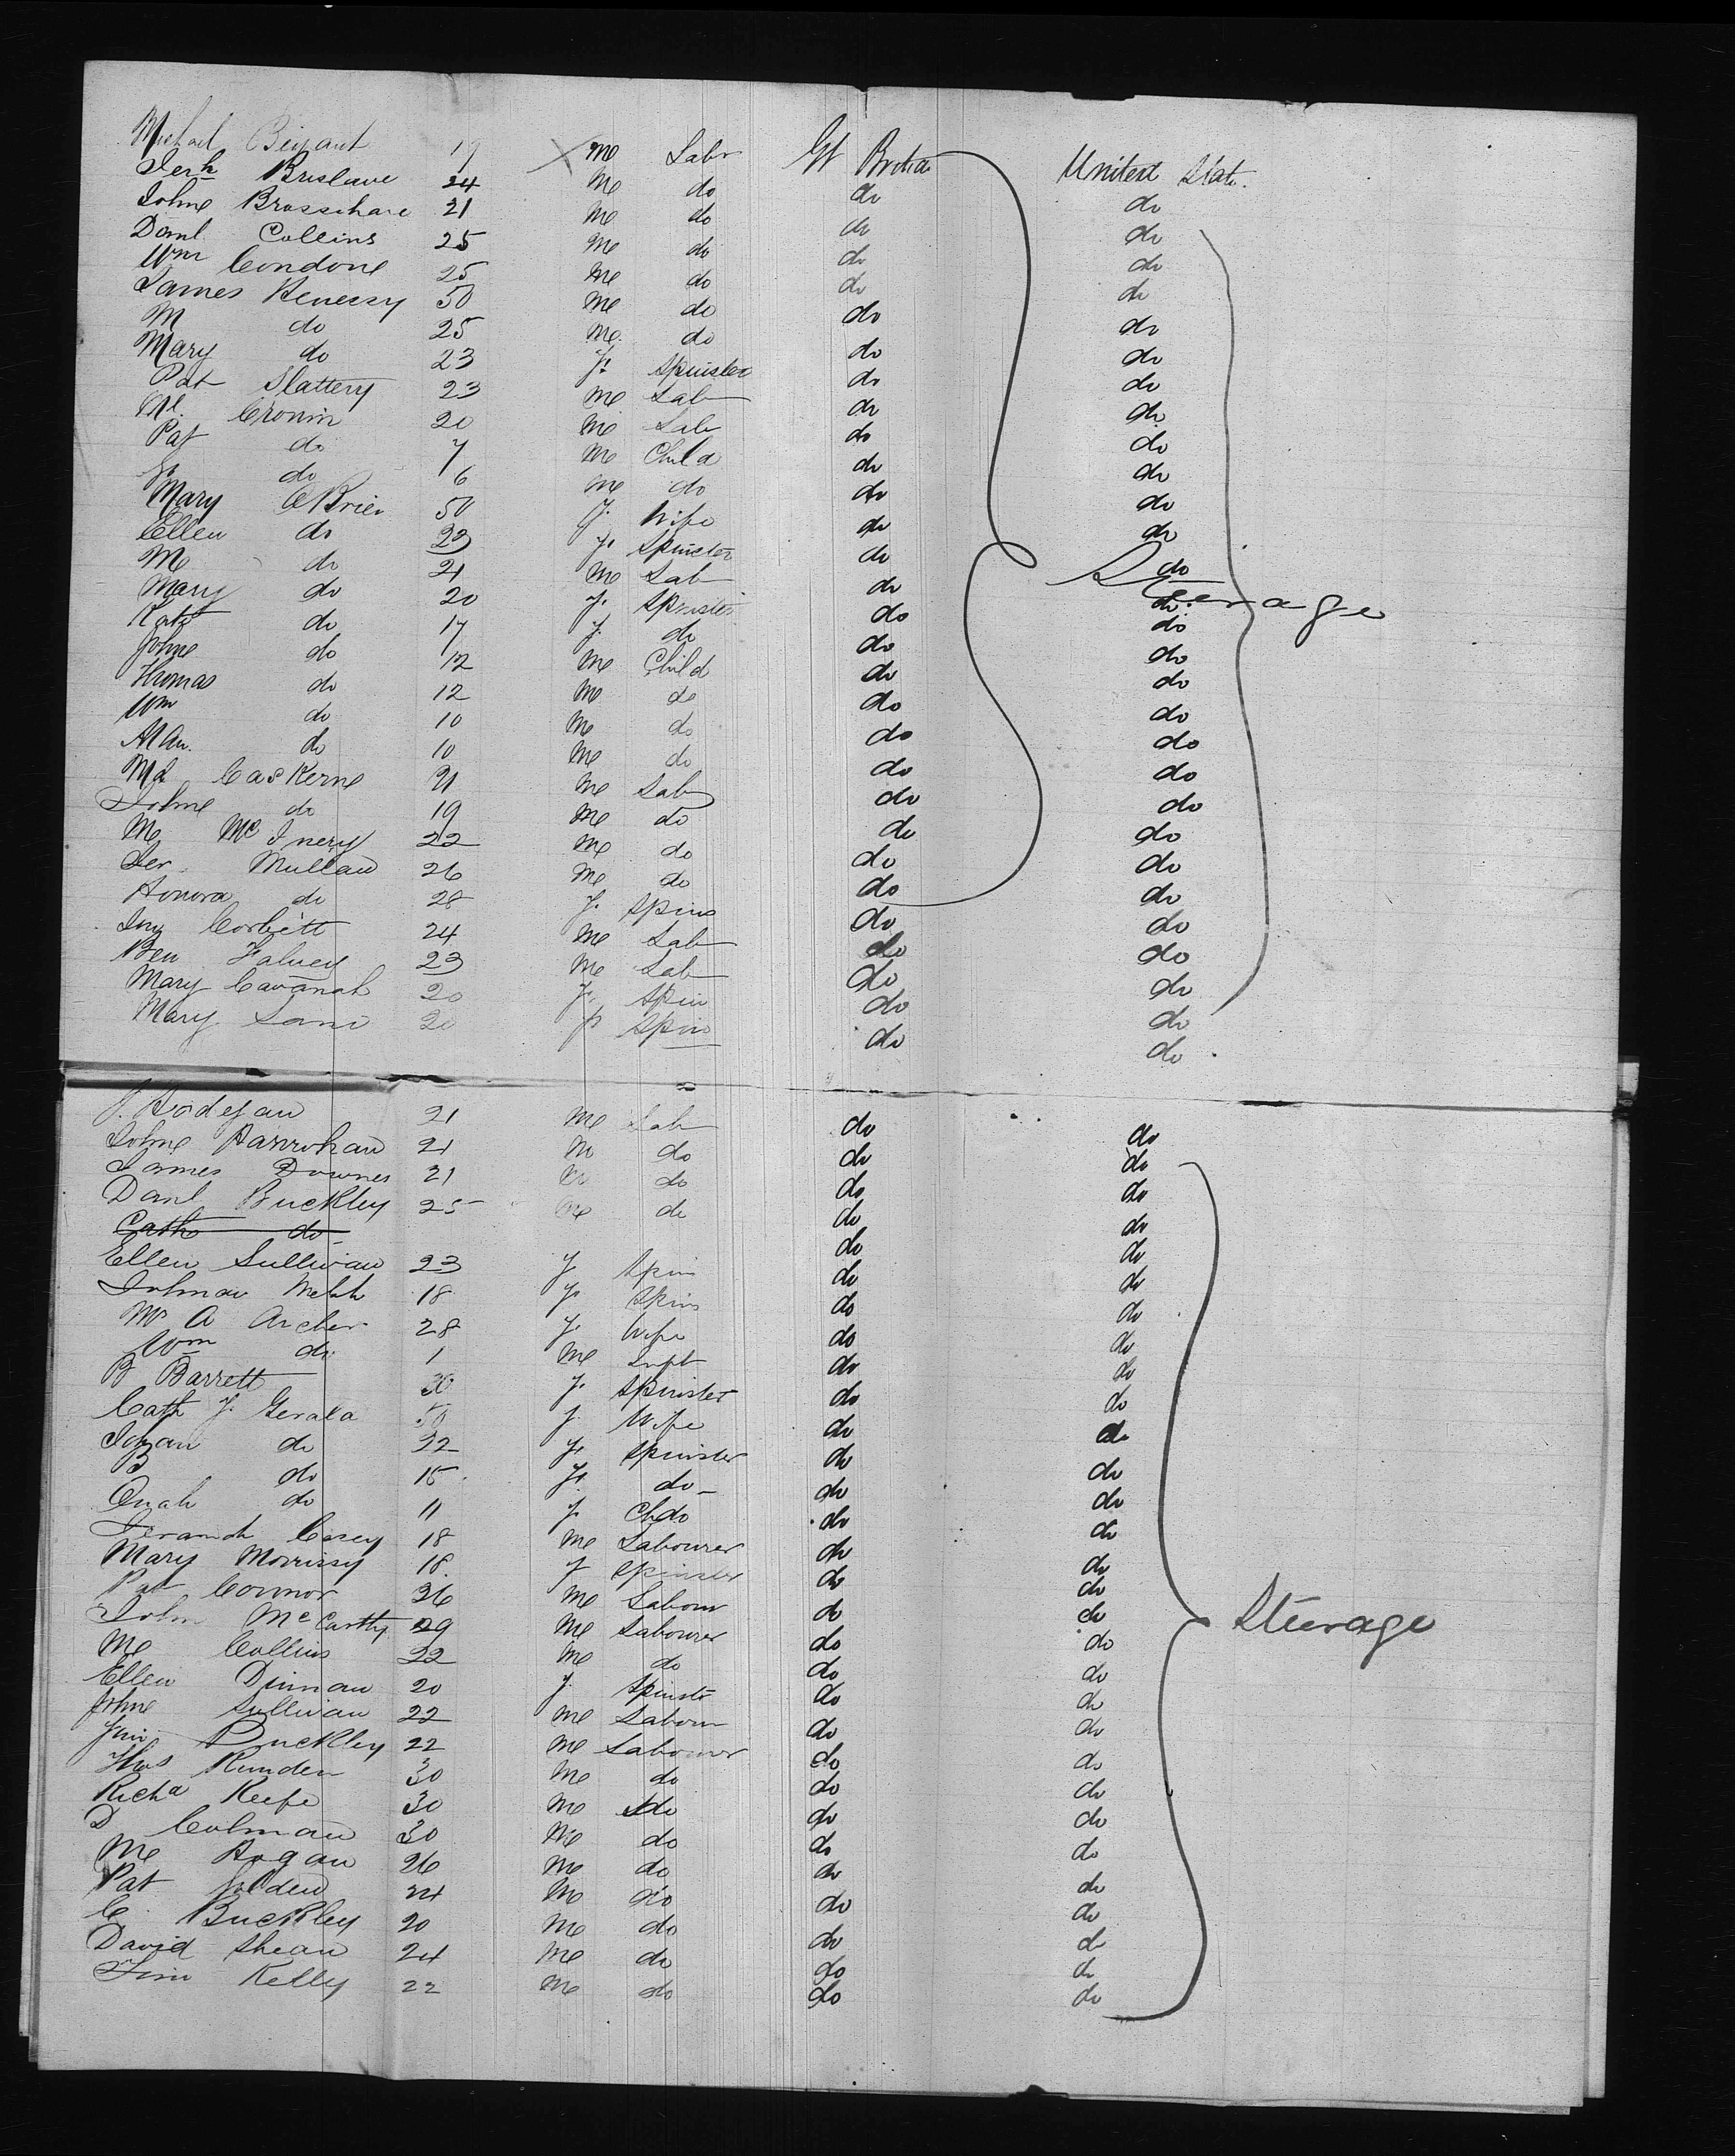 Michael 19 me Labr Gt Britia United State.
Jerh Brislane 24 me do do do
Johne Brassihare 21 me do do do
Danl Collins 25 me do do do
Wm Condone 25 me do do do
James Henessy 50 me do do do
M do 25 me. do do do
Mary do 23 f. Spinster do do
Pat Slattery 23 me Lab do do
Ml. Cronin 20 me Lab do do
Pat do 7 me Child do do
do 6 me do do do
Mary OBrien 50 f. Wife do do
Ellen do 22 f. Spinster do do
Me do 21 me Lab do do
Mary do 20 f. Spinster do do
Kate do 17 f. do do do
Johne do 12 me Child do do
Thomas do 12 me do do do
Wm do 10 me do do do
Mau. do 10 me do do do
Ml Caskerne 21 me Lab do do
Johne do 19 me do do do
Me McInery 22 me do do do
Jer. Mullan 26 me do do do
Honora do 28 f. Spins do do
Jny Corbett 24 me Lab do do
Ben Falvey 23 me Lab do do
Mary Cavanah 20 f. Spin do do
Mary 20 f. Spin do do
Steerage
21 me Lab do do
Johne Hanrohan 21 m do do do
James Downes 21 m do do do
Danl Buckley 25 me do do do
Cath do do do
Ellen Sullivan 23 f Spin do do
Johnan Welsh 18 f. Spins do do
Ms A Archer 28 f. Wife do do
Wm do 1 me Inft do do
B Barrett 30 f. Spinster do do
Cath F. Gerald 50 f. Wife do do
Johan do 22 f. Spinster do do
B do 15 f. do do do
Onah do 11 f. Chdo do do
Casey 18 me Labourer do do
Mary Morrissy 18. f Spinster do do
Pat Connor 26 me Labour do do
John McCarthy 29 me Labourer do do
Me Collins 22 me do do do
Ellen Dinnan 20 f. Spinste do do
Johne Sullivan 22 me Labour do do
Jim Buckley 22 me Labourer do do
Thos Runden 30 me do do do
Richd Keefe 30 me do do do
D Colman 30 me do do do
Me Hogan 26 me do do do
Pat 24 me do do do
C. Buckley 20 me do do do
David Shean 24 me do do do
Jim Kelly 22 me do do do
Steerage